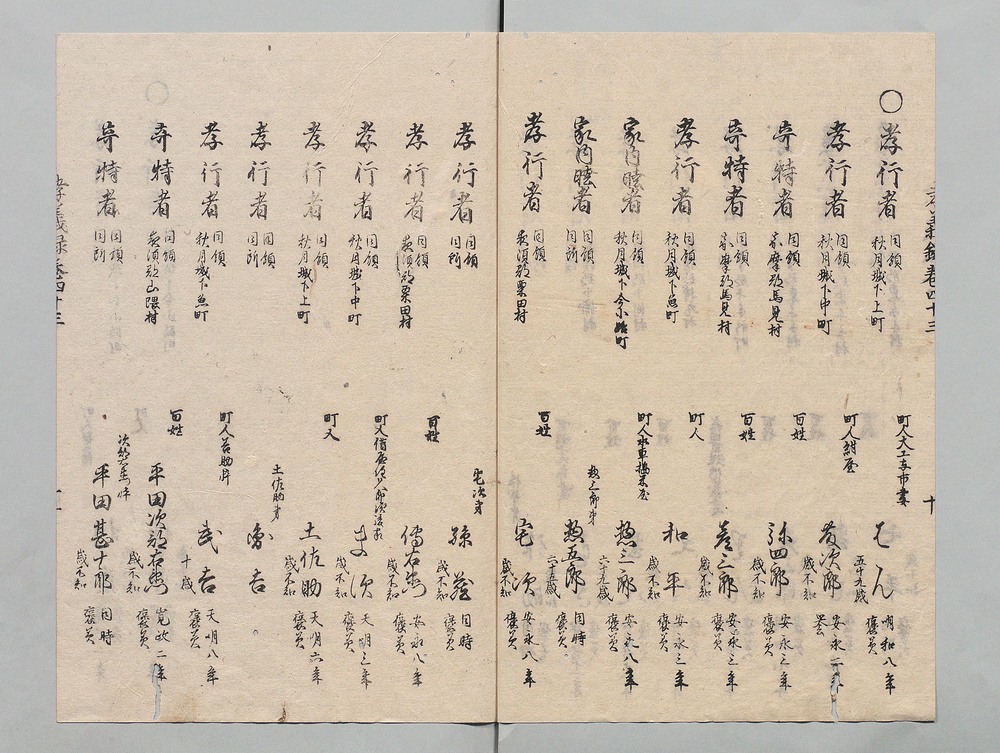 孝義録巻四十三
十
○孝行者 同領 秋月城下上町 町人大工 五十九歳 明和八年 褒美
孝行者 同領 秋月城下中町 町人紺屋 歳不知 安永二年
奇特者 同領 嘉摩郡馬見村 百姓 弥四郎 歳不知 安永三年 褒美
奇特者 同領 嘉摩郡馬見村 百姓 善三郎 歳不知 安永三年 褒美
孝行者 同領 秋月城下魚町 町人 和平 歳不知 安永三年 褒美
家内睦者 同領 秋月城下今小路町 町人 惣三郎 六十九歳 安永八年 褒美
家内睦者 同領 同所 惣三郎弟 惣五郎 六十五歳 同時 褒美
孝行者 同領 夜須郡栗田村 百姓 宅次 歳不知 安永八年 褒美
孝行者 同領 同所 宅次弟 孫蔵 歳不知 同時 褒美
孝行者 同領 夜須郡栗田村 百姓 傳右衛門 歳不知 安永八年 褒美
孝行者 同領 秋月城下中町 歳不知 天明三年 褒美
孝行者 同領 秋月城下上町 町人 土佐助 歳不知 天明六年 褒美
孝行者 同領 同所 土佐助弟
孝行者 同領 秋月城下魚町 町人 武吉 十歳 天明八年 褒美
奇特者 同領 夜須郡山隈村 百姓 平田次郎右衛門 歳不知 寛政二年 褒美
奇特者 同領 同所 平田甚十郎 歳不知 同時 褒美
孝義録巻四十三